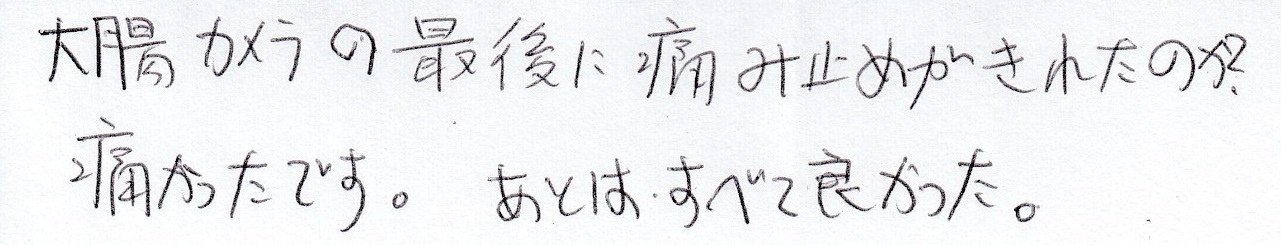 大腸カメラの最後に痛み止めがきれたのか?
痛かったです。 あとは すべて良かった。